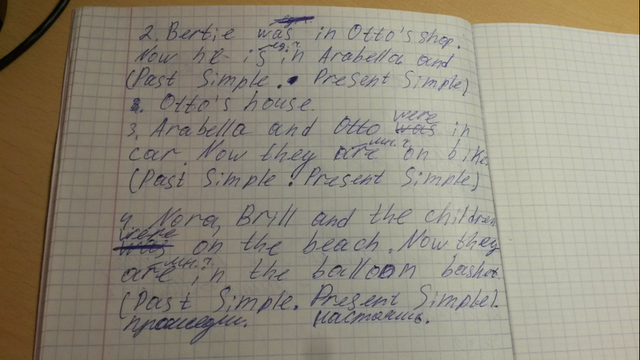 2. Bertie was in Otto's shop.
ед.ч
Now he is in Arabella and
(Past Simple. Present Simple)
Otto's house.
were
3. Arabella and Otto was in
мн.ч
car. Now they are on bike
(Past Simple. Present Simple)
4. Nora, Brill and the children
were
was on the beach. Now they
мн.ч
are in the balloon basket
(Past Simple. Present Simple).
прошедш. настоящ.